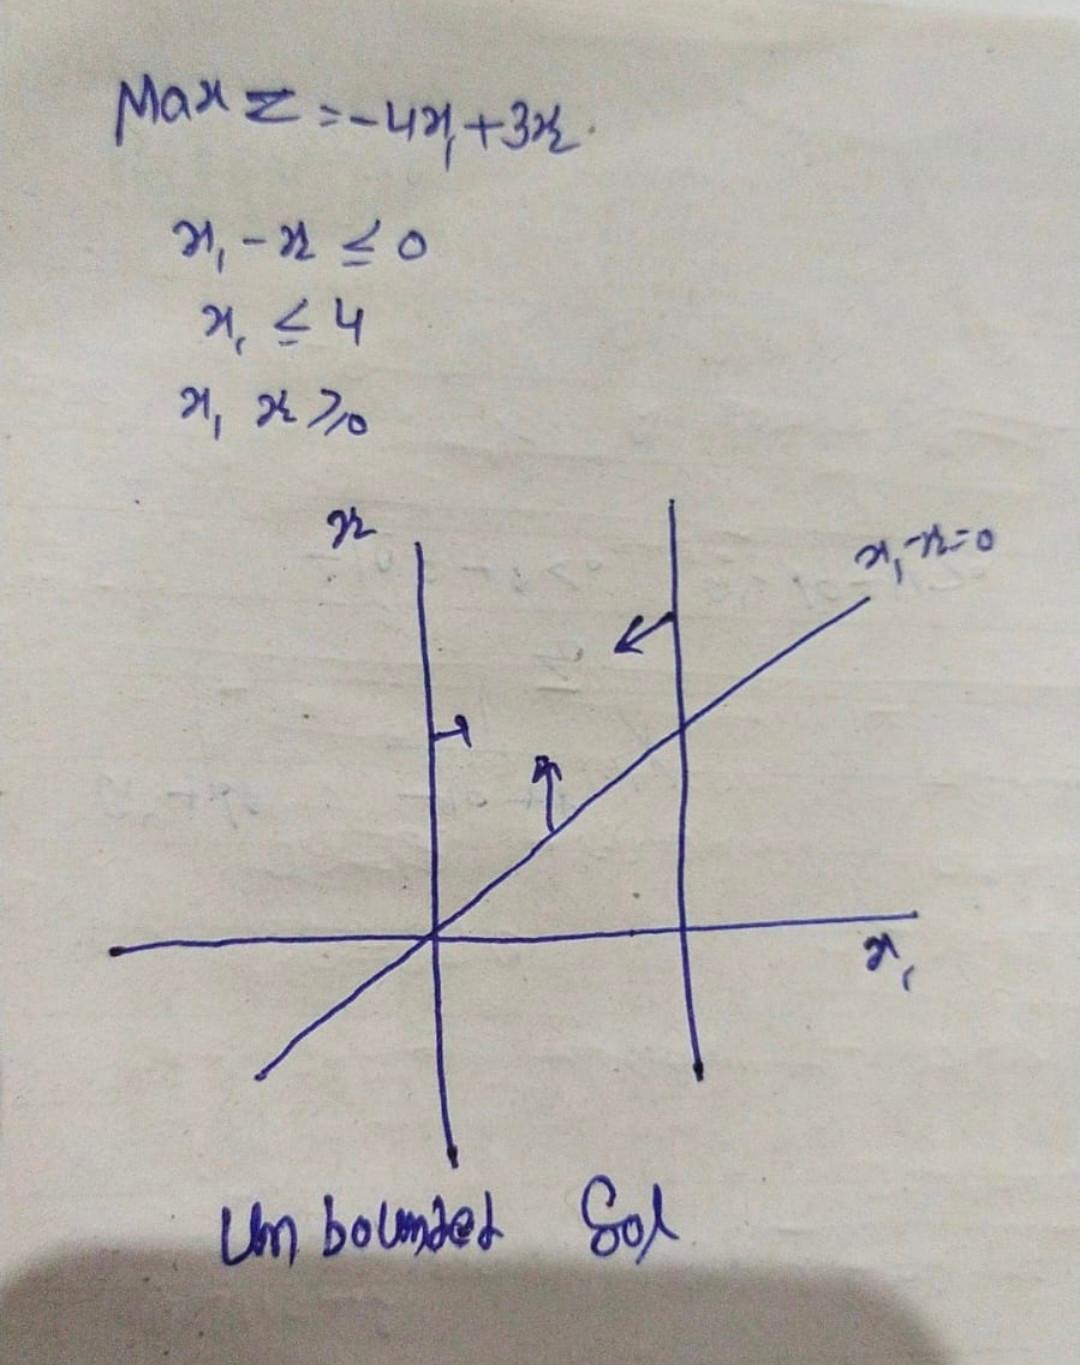 Max Z = -4x₁ + 3x₂
x₁ - x₂ ≤ 0
x₁ ≤ 4
x₁ x₂ ≥ 0
x₂
x₁ - x₂ = 0
x₁
Unbounded Sol